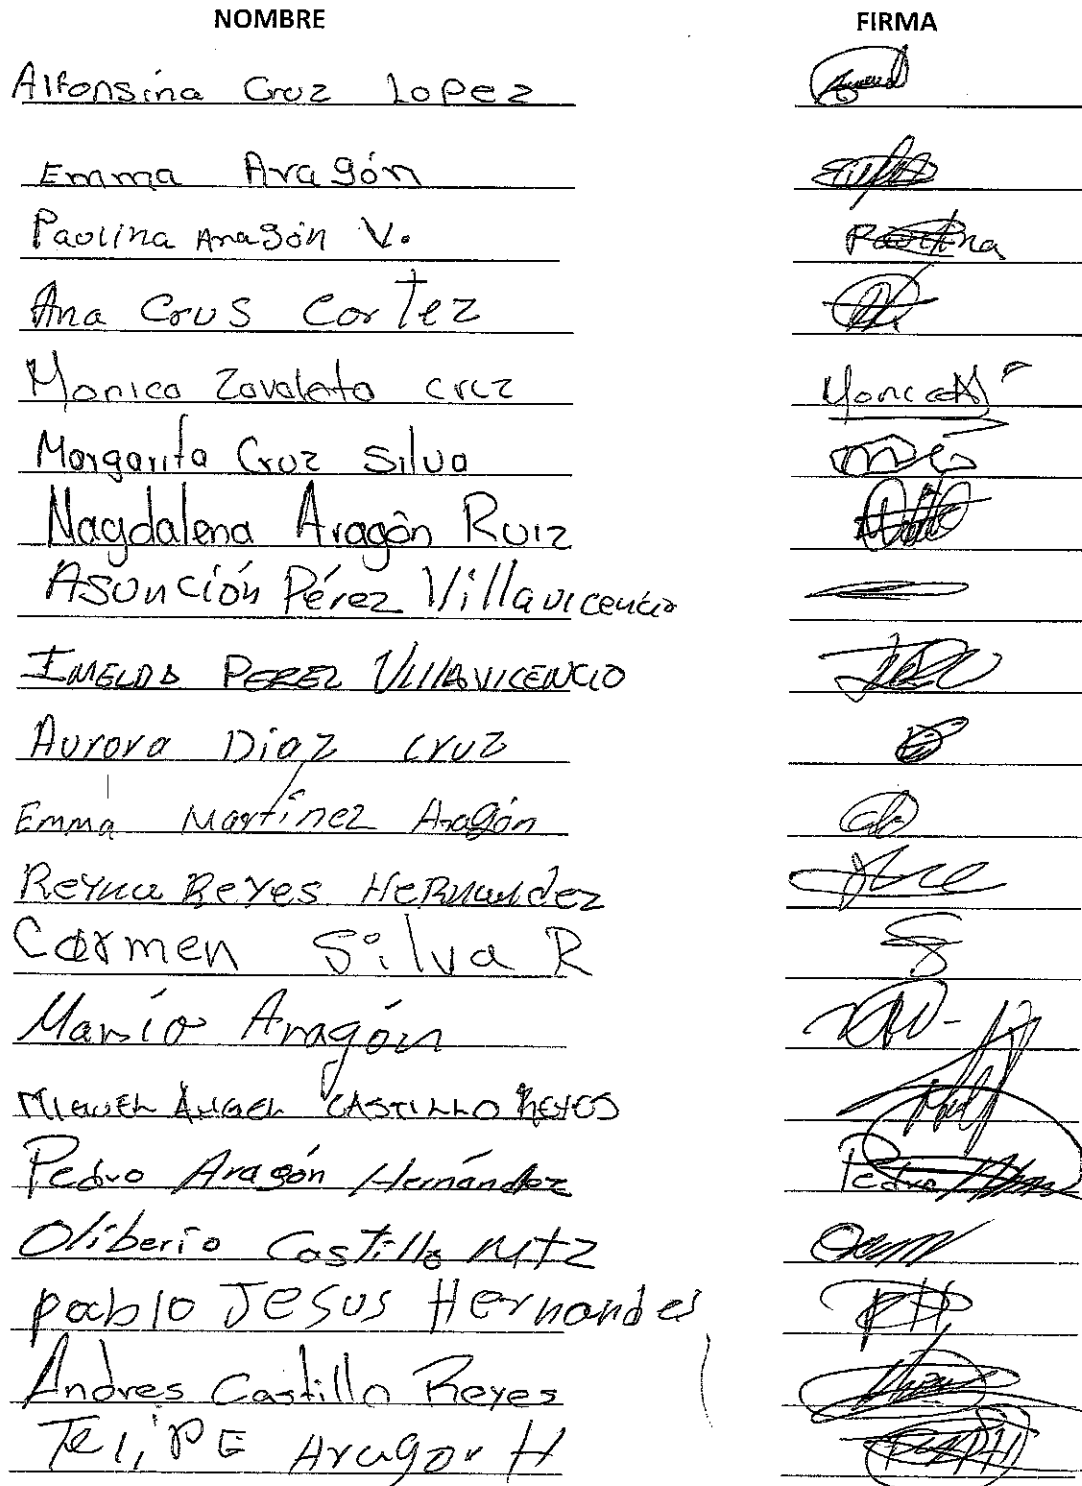 NOMBRE FIRMA
Alfonsina Cruz Lopez
Emma Aragón
Paolina Aragón V. Paolina
Ana Crus Cortez
Monica Zavaleta cruz
Margarita Cruz Silva
Magdalena Aragón Ruiz
Asunción Pérez Villavicencio
IMELDA PEREZ VILLAVICENCIO
Aurora Diaz cruz
Emma Martínez Aragón
Reyna Reyes Hernandez
Carmen Silva R
Mario Aragón
MIGUEL ANGEL CASTILLO REYES
Pedro Aragón Hernández Pedro
Oliberio Castillo Mtz
pablo JESUS Hernandes
Andres Castillo Reyes
FeliPE Aragon H